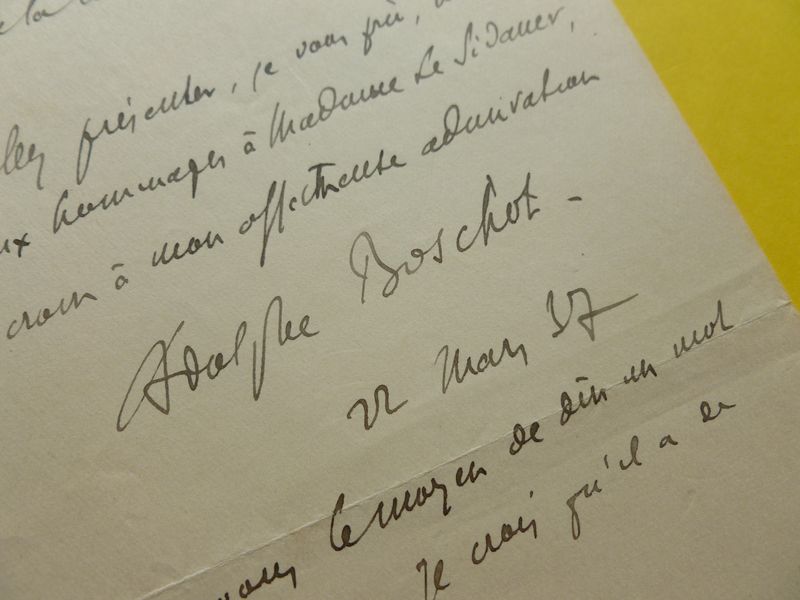 de la
présenter, je vous prie,
hommages à Madame Le Sidaner,
croire à mon affectueuse admiration
Adolphe Boschot -
22 Mars 37
le moyen de dire un mot
Je crois qu'il a